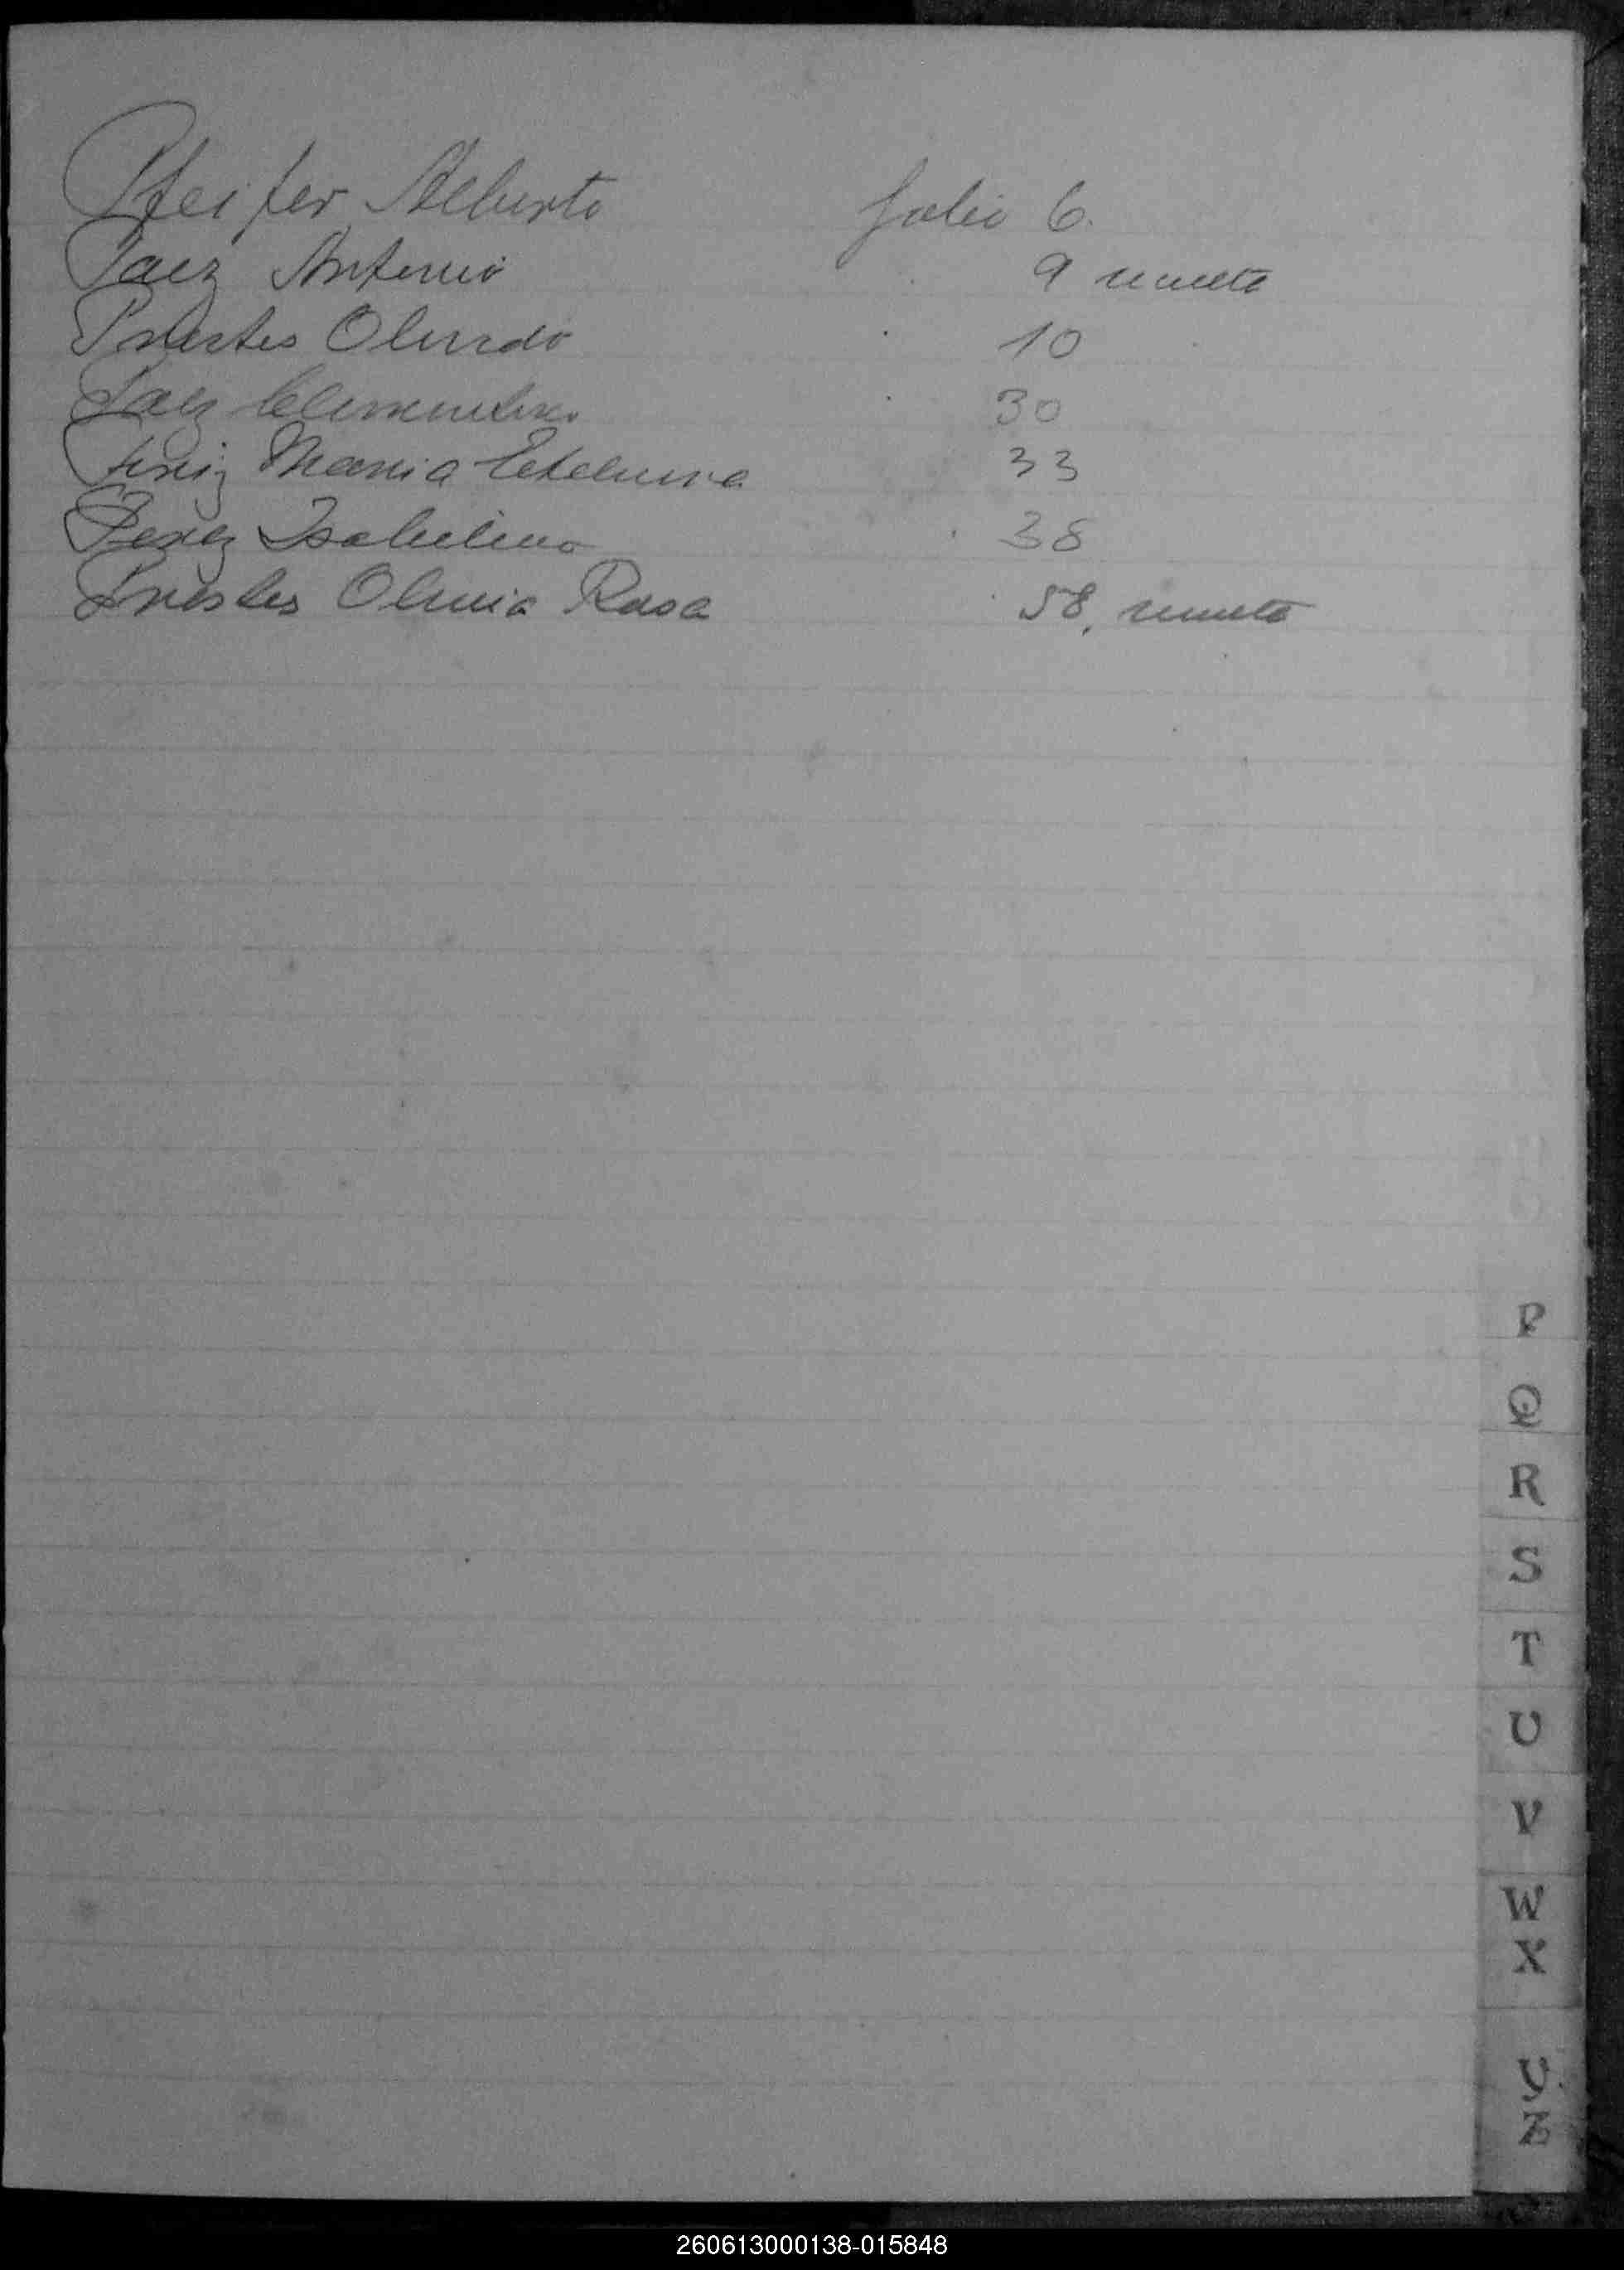 Pfeifer Alberto folio 6.
Paez Antonio 9 vuelto
Prestes Olindo 10
Paez Clementino 30
Maria Etelvina 33
Perez Isabelino 38
Prestes Olivia Rosa 58, vuelto
P
Q
R
S
T
U
V
W
X
Y
Z
260613000138-015848